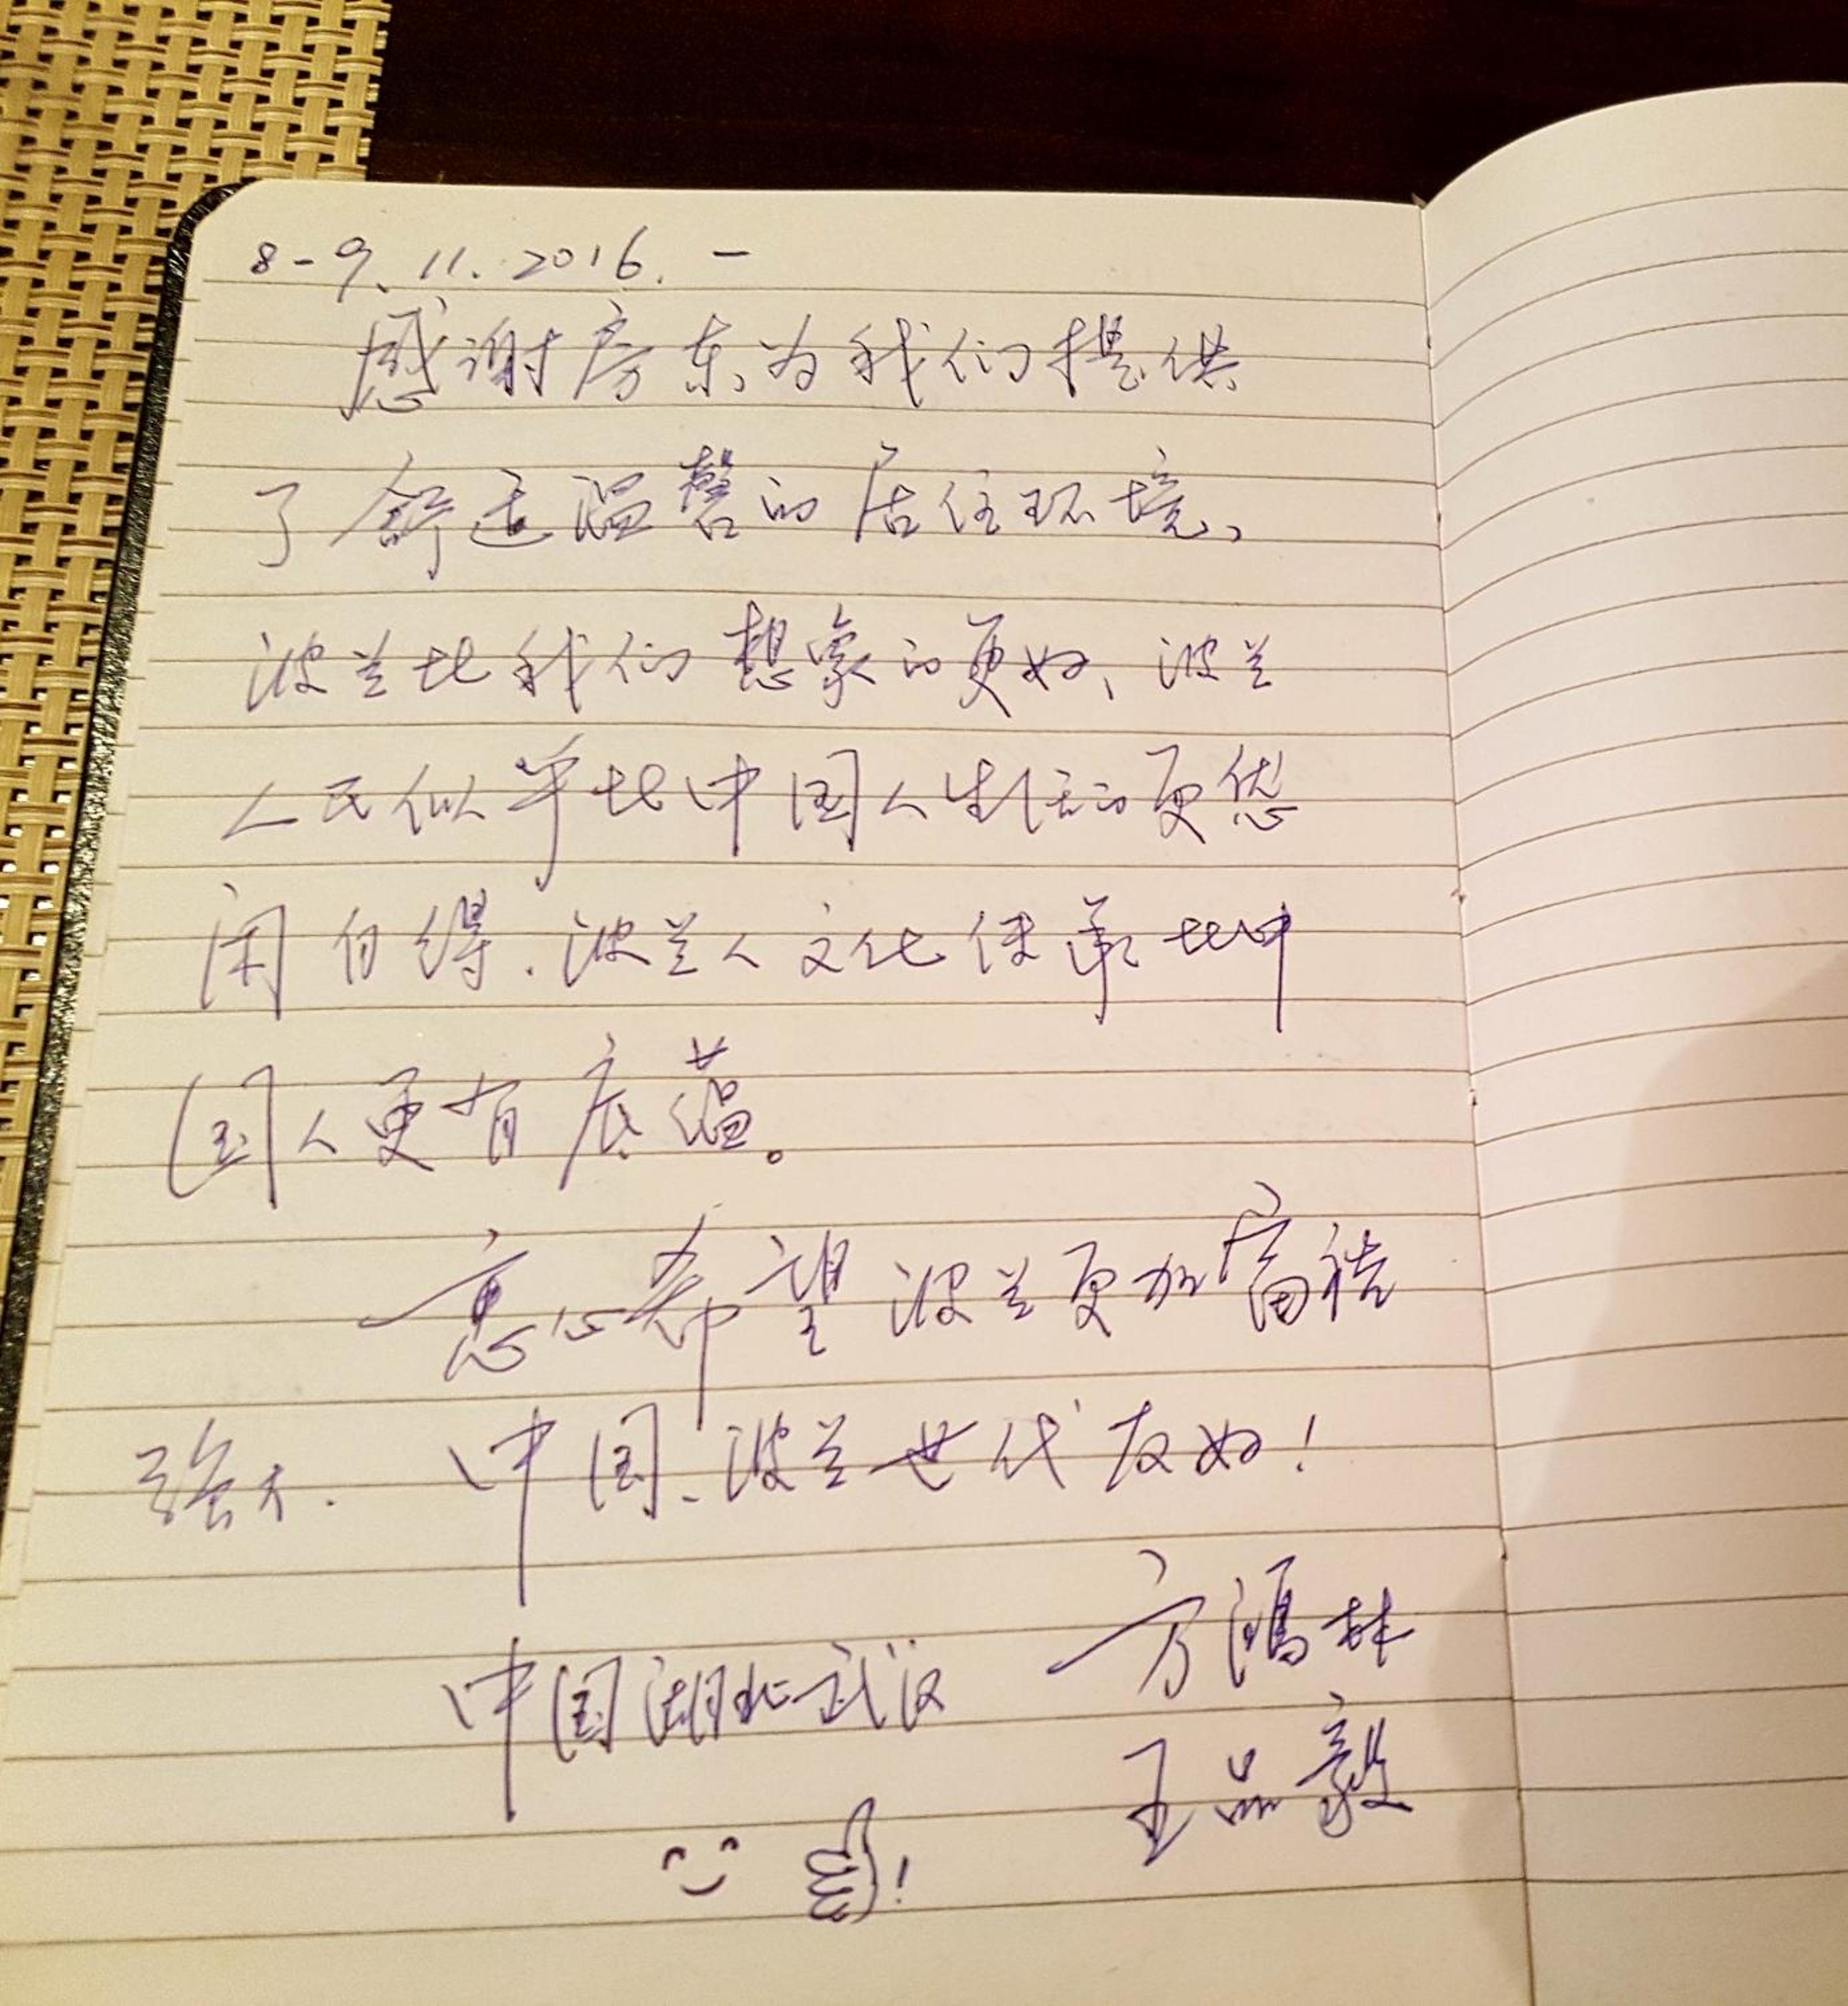 8-9.11.2016.-
感谢房东为我们提供
了舒适温馨的居住环境、
波兰比我们想象的更好、波兰
人民似乎比中国人生活的更悠
闲自得.波兰人文化传承比中
国人更有底蕴。
衷心希望波兰更加富裕
强大. 中国、波兰世代友好!
中国湖北武汉 方鸿林
王品毅
!